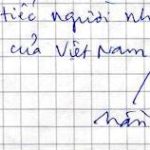 tiếc người nh
của Việt Nam